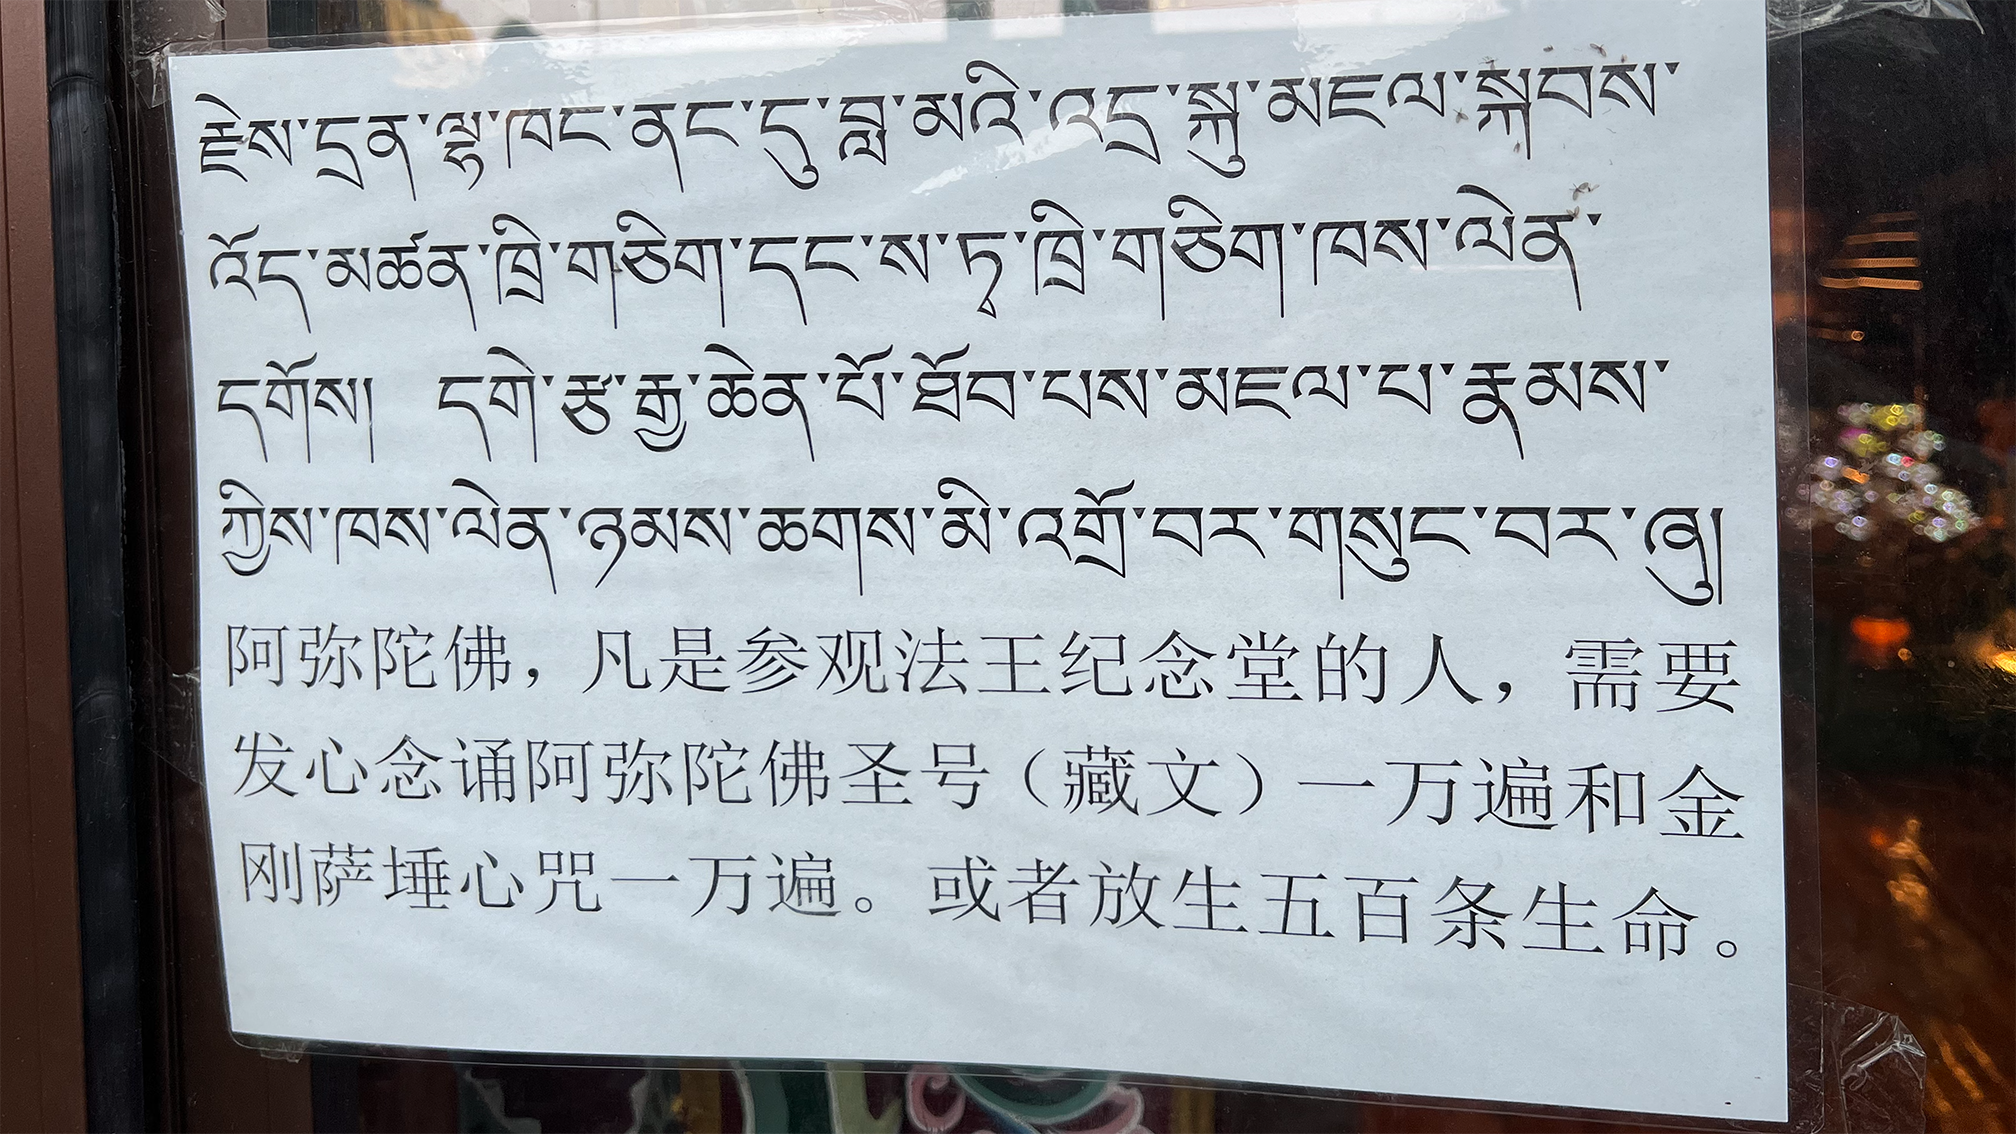 རྗེས་དྲན་ལྷ་ཁང་ནང་དུ་བླ་མའི་འདྲ་སྐུ་མཇལ་སྐབས་
འོད་མཚན་ཁྲི་གཅིག་དང་ས་ཏྭ་ཁྲི་གཅིག་ཁས་ལེན་
དགོས། དགེ་རྩ་རྒྱ་ཆེན་པོ་ཐོབ་པས་མཇལ་པ་རྣམས་
ཀྱིས་ཁས་ལེན་ཉམས་ཆགས་མི་འགྲོ་བར་གསུང་བར་ཞུ།
阿弥陀佛，凡是参观法王纪念堂的人，需要
发心念诵阿弥陀佛圣号（藏文）一万遍和金
刚萨埵心咒一万遍。或者放生五百条生命。